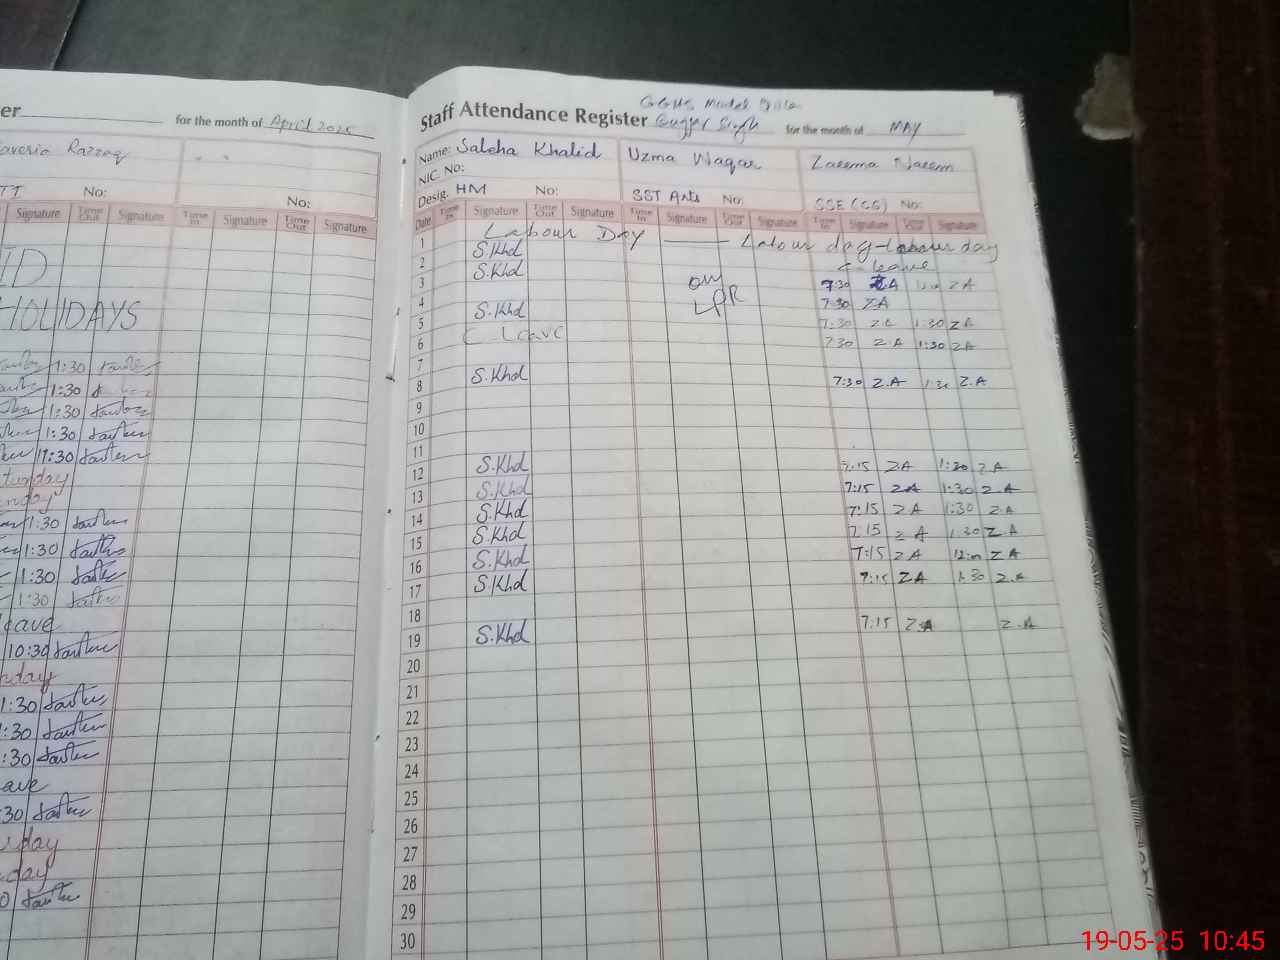 er
for the month of April 2025
averia Razzaq
No:
No:
Signature Time Out Signature Time In Signature Time Out Signature
ID
HOLIDAYS
1:30
1:30
1:30
1:30
1:30
turday
nday
1:30
1:30
1:30
1:30
eave
10:30
nday
1:30
1:30
:30
ave
:30
urday
day
0
Staff Attendance Register
GGHS Model
Gujjar Singh for the month of MAY
Name: Saleha Khalid Uzma Waqar Zaeema Naeem
NIC No:
Desig. HM No: SST Arts No: SSE (CS) No:
Date Time In Signature Time Out Signature Time In Signature Time Out Signature Time In Signature Time Out Signature
1 Labour Day Labour day Labour day
2 S.Khd C-leave
3 S.Khd on 7:30 Z.A Z A
4 LPR 7:30 ZA
5 S.Khd 7:30 Z A 1:30 Z A
6 C-Leave 7:30 Z.A 1:30 Z A
7
8 S.Khd 7:30 Z.A Z.A
9
10
11
12 S.Khd 7:15 ZA 1:30 Z A
13 S.Khd 7:15 Z A 1:30 Z.A
14 S.Khd 7:15 Z A 1:30 Z.A
15 S.Khd 7:15 Z A 1:30 Z A
16 S.Khd 7:15 Z A Z A
17 S.Khd 7:15 Z A 1:30 Z.A
18
19 S.Khd 7:15 Z.A Z.A
20
21
22
23
24
25
26
27
28
29
30
19-05-25 10:45